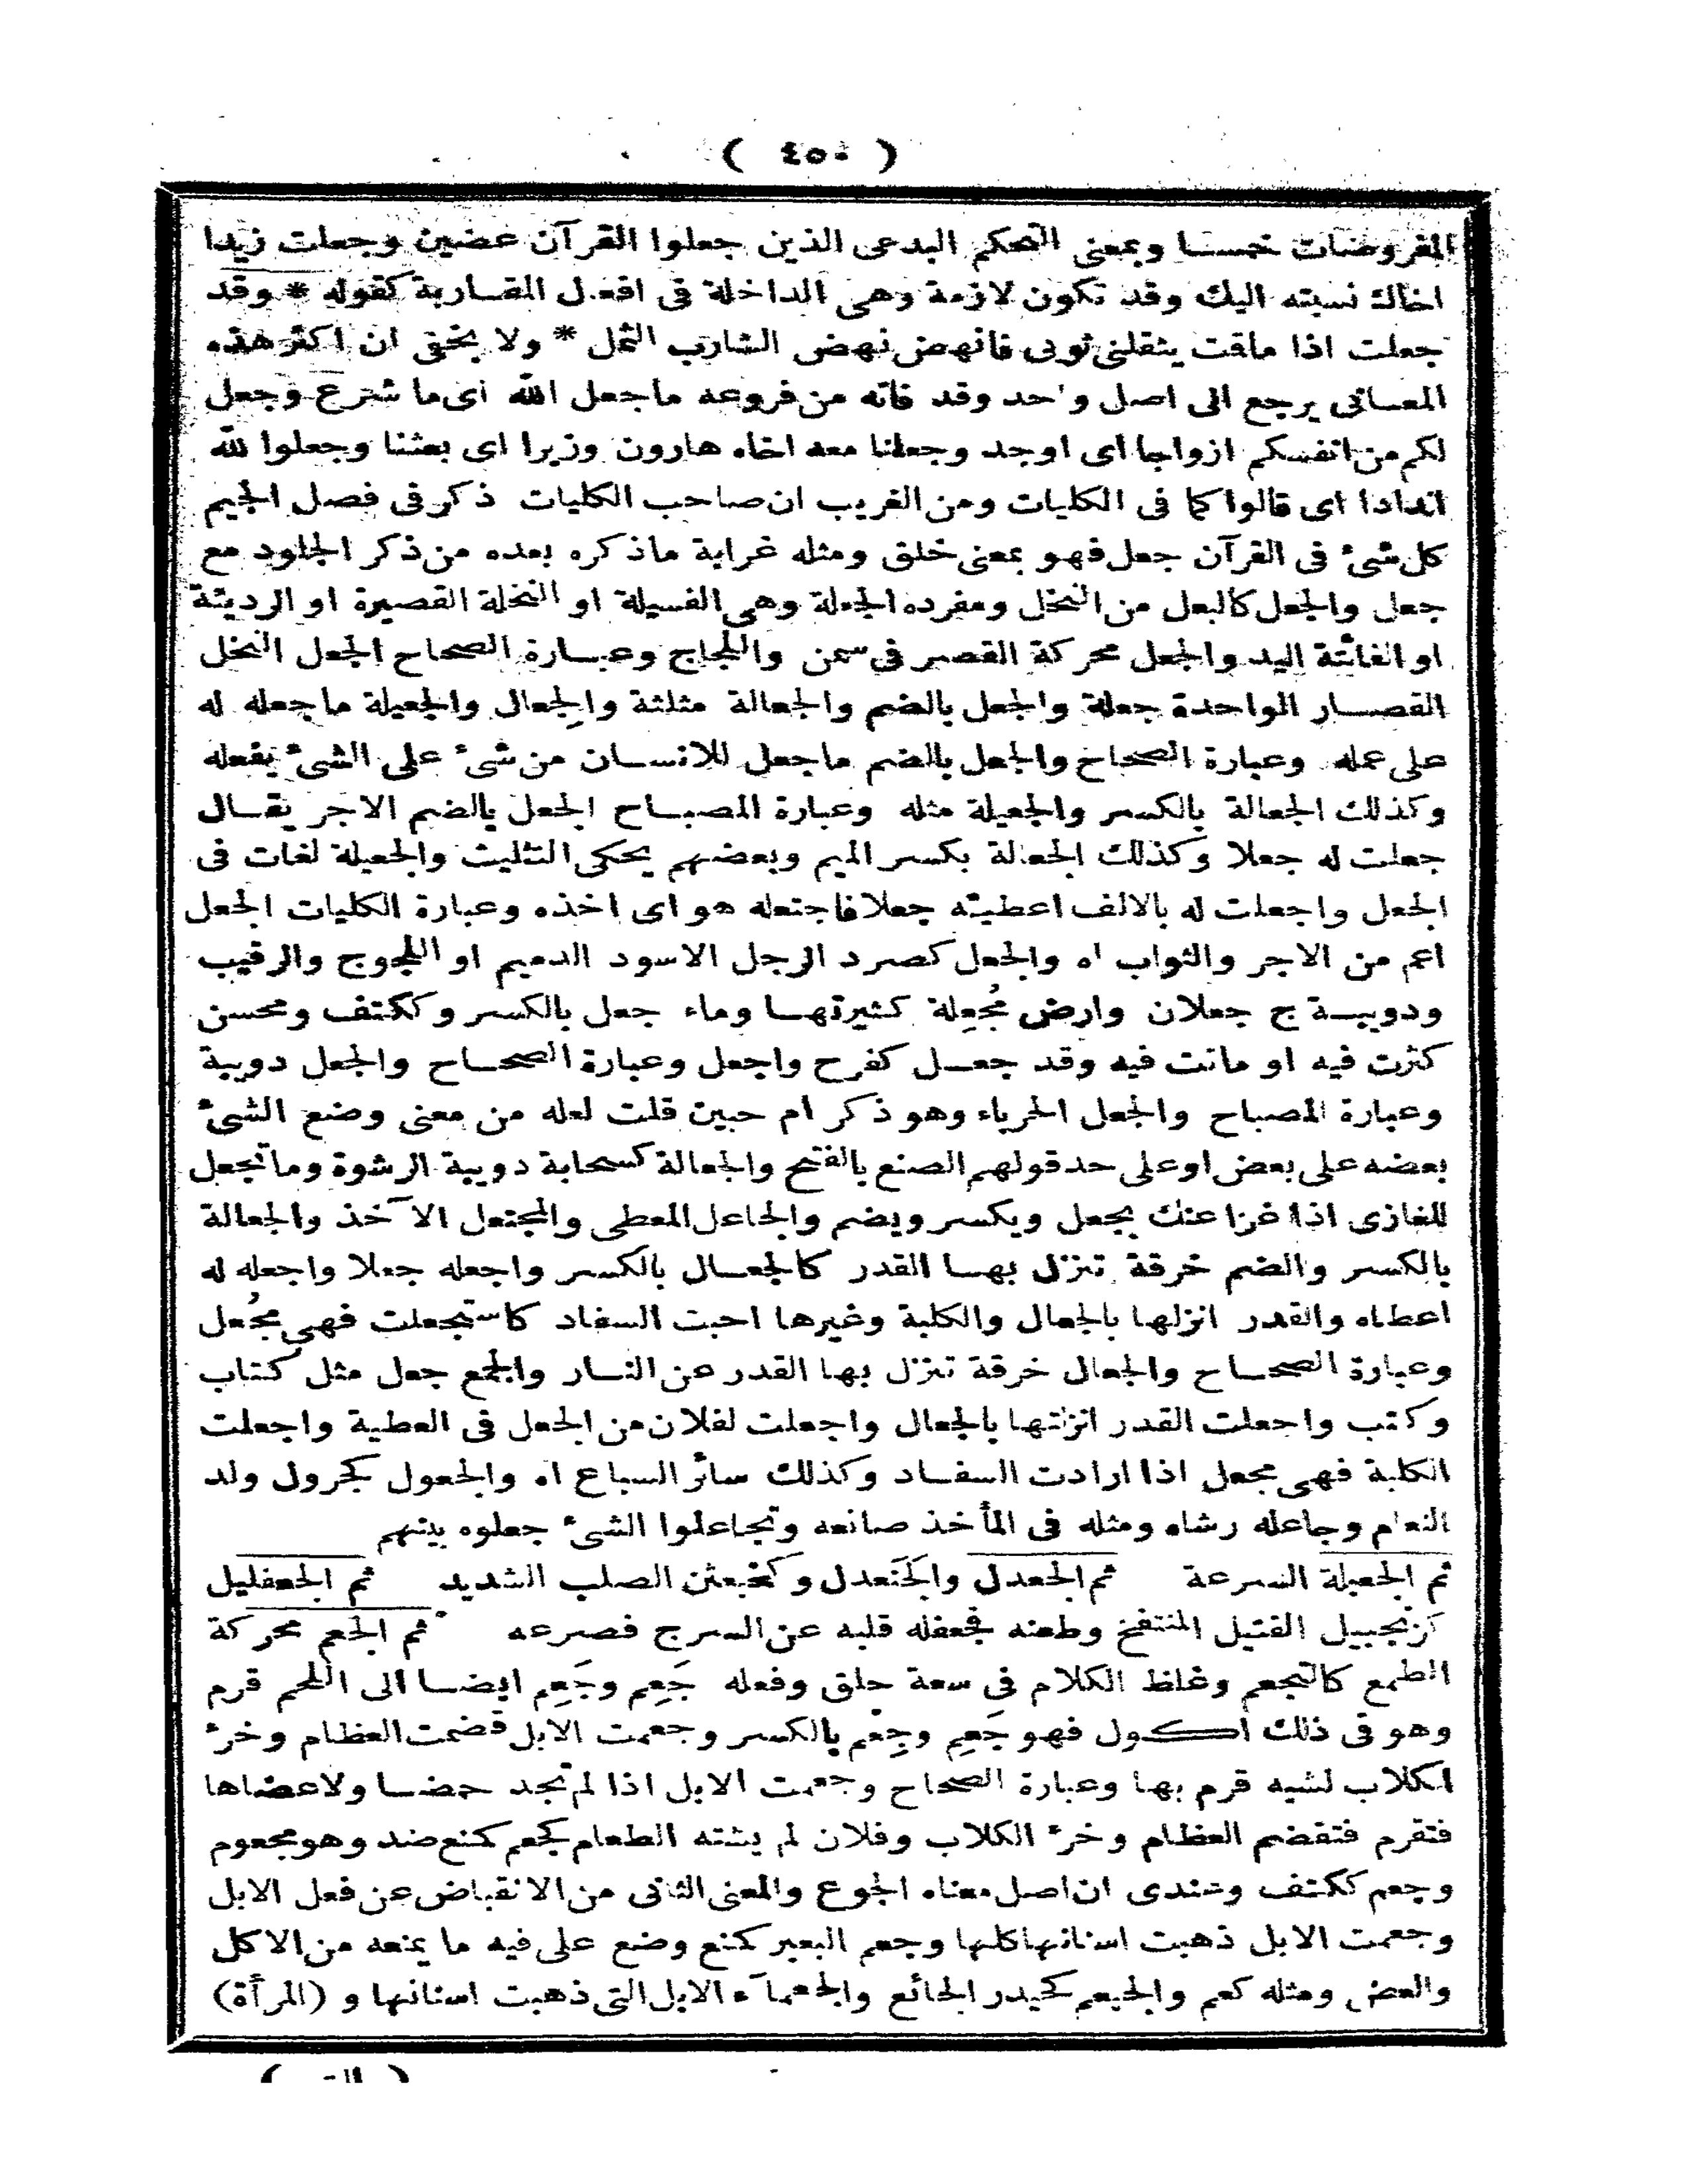 ( ٤٥٠ )
المفروضات خمسا وبمعنى الحكم البدعى الذين جعلوا القرآن عضين وجعلت زيدا
اخاك نسبته اليك وقد تكون لازمة وهى الداخلة فى افعل المقاربة كقوله * وقد
جعلت اذا ماقت يثقلنى ثوبى فانهض نهض الشارب الثمل * ولا يخفى ان اكثر هذه
المعانى يرجع الى اصل واحد وقد فاته من فروعه ماجعل الله اى ما شرع وجعل
لكم من انفسكم ازواجا اى اوجد وجعلنا معه اخاه هارون وزيرا اى بعثنا وجعلوا لله
اندادا اى قالوا كما فى الكليات ومن الغريب ان صاحب الكليات ذكر فى فصل الجيم
كل شىء فى القرآن جعل فهو بمعنى خلق ومثله غرابة ماذكره بعده من ذكر الجلود مع
جعل والجعل كالبعل من النخل ومفرده الجعلة وهى الفسيلة او النخلة القصيرة او الرديئة
او الفائتة اليد والجعل محركة القصر فى سمن واللجاج وعبارة الصحاح الجعل النخل
القصار الواحدة جعلة والجعل بالضم والجعالة مثلثة والجِعال والجعيلة ماجعله له
على عمله وعبارة الصحاح والجعل بالضم ماجعل للانسان من شىء على الشىء يفعله
وكذلك الجعالة بالكسر والجعيلة مثله وعبارة المصباح الجعل بالضم الاجر يقال
جعلت له جعلا وكذلك الجعالة بكسر الميم وبعضهم يحكى التثليث والجعيلة لغات فى
الجعل واجعلت له بالالف اعطيته جعلا فاجتعله هو اى اخذه وعبارة الكليات الجعل
اعم من الاجر والثواب اه والجعل كصرد الرجل الاسود الدميم او اللجوج والرقيب
ودويبة ج جعلان وارض مُجعِلة كثيرتها وماء جعل بالكسر وككتف ومحسن
كثرت فيه او ماتت فيه وقد جعل كفرح واجعل وعبارة الصحاح والجعل دويبة
وعبارة المصباح والجعل الحرباء وهو ذكر ام حبين قلت لعله من معنى وضع الشىء
بعضه على بعض او على حد قولهم الصنع بالفتح والجعالة كسحابة دويبة الرشوة وما تجعل
للغازى اذا غزا عنك بجعل ويكسر ويضم والجاعل المعطى والمجتعل الآخذ والجعالة
بالكسر والضم خرقة تنزل بها القدر كالجعال بالكسر واجعله جعلا واجعله له
اعطاه والقدر انزلها بالجعال والكلبة وغيرها احبت السفاد كاستجعلت فهى مجُعل
وعبارة الصحاح والجعال خرقة تنزل بها القدر عن النار والجمع جعل مثل كتاب
وكتب واجعلت القدر انزلتها بالجعال واجعلت لفلان من الجعل فى العطية واجعلت
الكلبة فهى مجعل اذا ارادت السفاد وكذلك سائر السباع اه والجعول كجرول ولد
النعام وجاعله رشاه ومثله فى المأخذ صانعه وتجاعلوا الشىء جعلوه بينهم
ثم الجعبلة السرعة ثم الجعدل والجَنَعدل وكخبعثن الصلب الشديد ثم الجعفليل
كزنجبيل القتيل المنتفخ وطعنه فجعفله قلبه عن السرج فصرعه ثم الجعم محركة
الطمع كالتجعم وغلظ الكلام فى سعة حلق وفعله جَعِم وجَعِم ايضا الى اللحم قرم
وهو فى ذلك اكول فهو جَعِم وجِعْم بالكسر وجعمت الابل قضمت العظام وخرء
الكلاب لشبه قرم بها وعبارة الصحاح وجعمت الابل اذا لم تجد حمضا ولا عضاها
فتقرم فتقضم العظام وخرء الكلاب وفلان لم يشته الطعام كجعم كنع ضد وهو مجعوم
وجعم ككتف وعندى ان اصل معناه الجوع والمعنى الثانى من الانقباض عن فعل الابل
وجعمت الابل ذهبت اسنانها كلها وجعم البعير كنع وضع على فيه ما يمنعه من الاكل
والعض ومثله كعم والجيعم كحيدر الجائع والجعماء الابل التى ذهبت اسنانها و (المرأة)